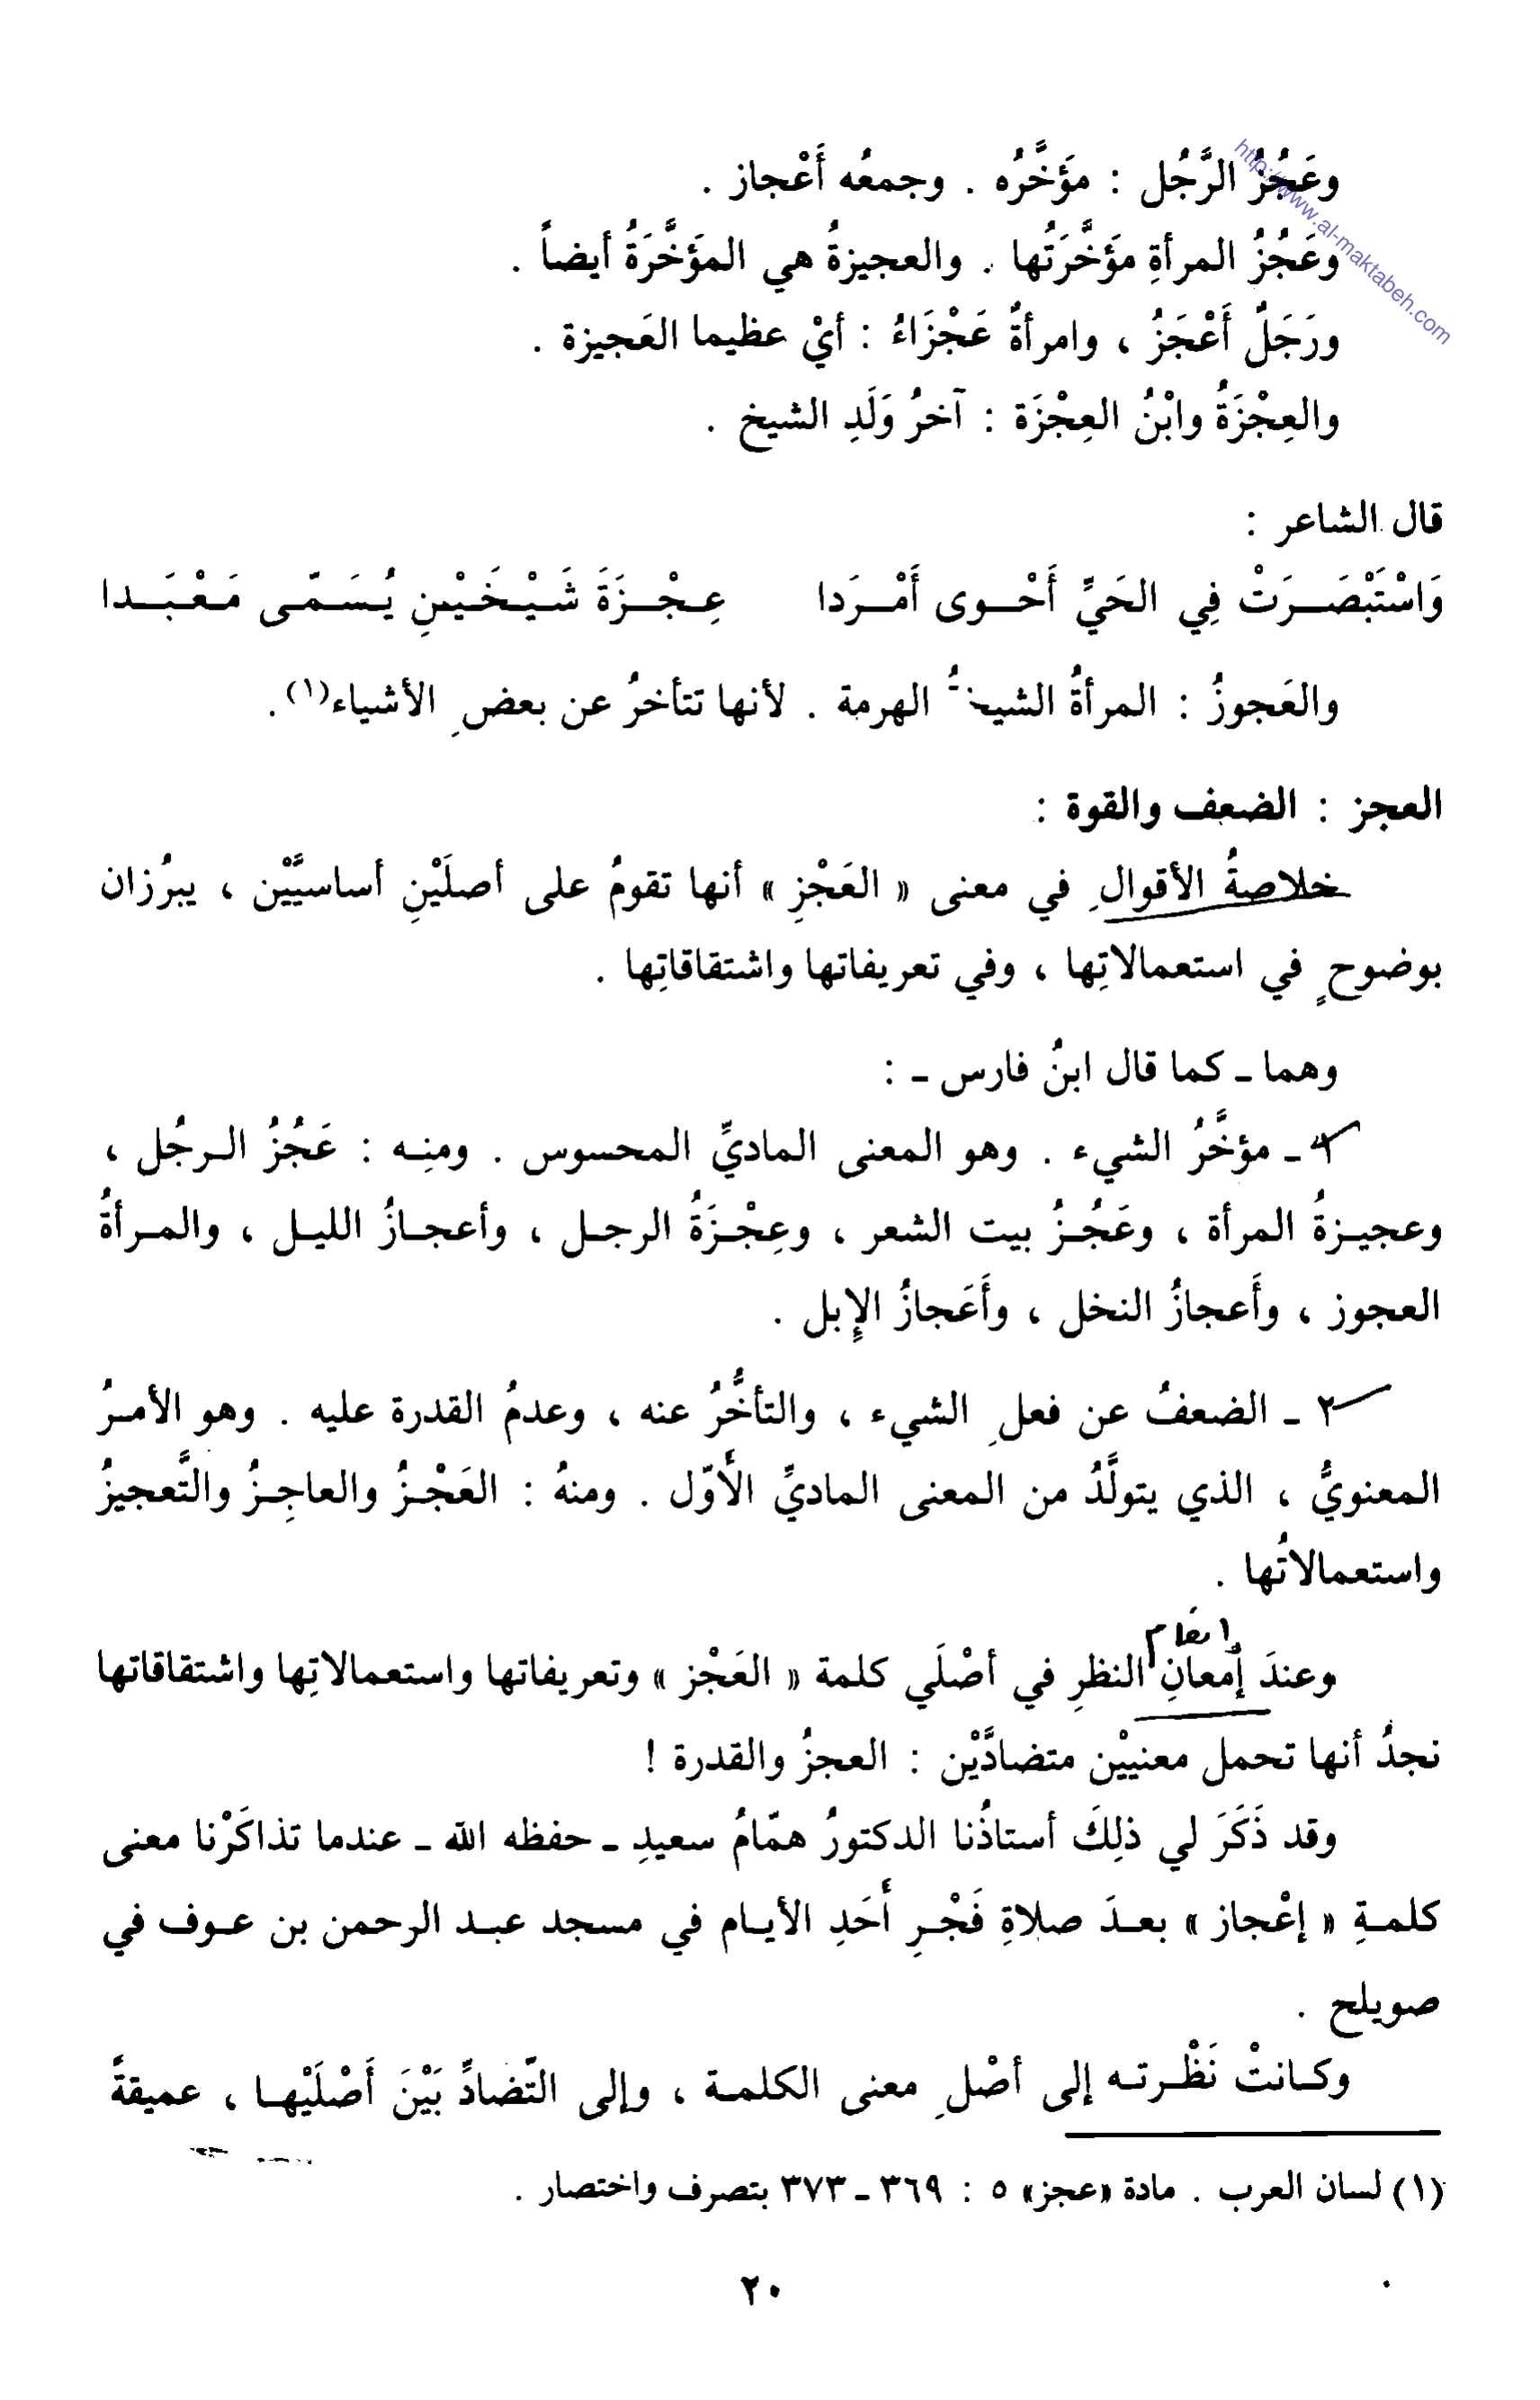 http://www.al-maktabeh.com
وعَجُزُ الرَّجُل : مؤَخَّرُه . وجمعُه أَعْجاز .
وعَجُزُ المرأةِ مؤَخَّرَتُها . والعجيزةُ هي المؤَخَّرَةُ أيضاً .
ورَجَلٌ أَعْجَزُ ، وامرأةٌ عَجْزَاءُ : أيْ عظيما العَجيزة .
والعِجْزَةُ وابْنُ العِجْزَة : آخرُ وَلَدِ الشيخ .
قال الشاعر :
وَاسْتَبْصَـرَتْ فِي الحَيِّ أَحْـوى أَمْـرَدا عِـجْـزَةَ شَـيْـخَـيْـنِ يُـسَـمّـى مَـعْـبَـدا
والعَجوزُ : المرأةُ الشيخةُ الهرمة . لأنها تتأخرُ عن بعضِ الأشياء(١) .
العجز : الضعف والقوة :
خلاصةُ الأقوالِ في معنى « العَجْزِ » أنها تقومُ على أصلَيْنِ أساسيَّيْن ، يبرُزان
بوضوحٍ في استعمالاتِها ، وفي تعريفاتها واشتقاقاتِها .
وهما ـ كما قال ابنُ فارس ـ :
١ ـ مؤخَّرُ الشيء . وهو المعنى الماديِّ المحسوس . ومنِـه : عَجُزُ الـرجُل ،
وعجيـزةُ المرأة ، وعَجُـزُ بيت الشعر ، وعِجْـزَةُ الرجـل ، وأعجـازُ الليـل ، والمـرأةُ
العجوز ، وأَعجازُ النخل ، وأَعَجازُ الإِبل .
٢ ـ الضعفُ عن فعلِ الشيء ، والتأخُّرُ عنه ، وعدمُ القدرة عليه . وهو الأمـرُ
المعنويُّ ، الذي يتولَّدُ من المعنى الماديِّ الأَوّل . ومنهُ : العَجْـزُ والعاجِـزُ والتَّعجيزُ
واستعمالاتُها .
وعندَ إمعانِ النظرِ في أصْلَي كلمة « العَجْز » وتعريفاتها واستعمالاتِها واشتقاقاتها
نجدُ أنها تحمل معنييْن متضادَّيْن : العجزُ والقدرة !
وقد ذَكَرَ لي ذلِكَ أستاذُنا الدكتورُ همّامُ سعيدِ ـ حفظه الله ـ عندما تذاكَرْنا معنى
كلمـةِ « إعْجاز » بعـدَ صلاةِ فَجْـرِ أَحَدِ الأيـام في مسجد عبـد الرحمن بن عـوف في
صويلح .
وكـانتْ نَظْـرتـه إلى أصْلِ معنى الكلمـة ، وإلى التّضادِّ بَيْنَ أَصْلَيْهـا ، عميقةً
(١) لسان العرب . مادة «عجز» ٥ : ٣٦٩ ـ ٣٧٣ بتصرف واختصار .
٢٠